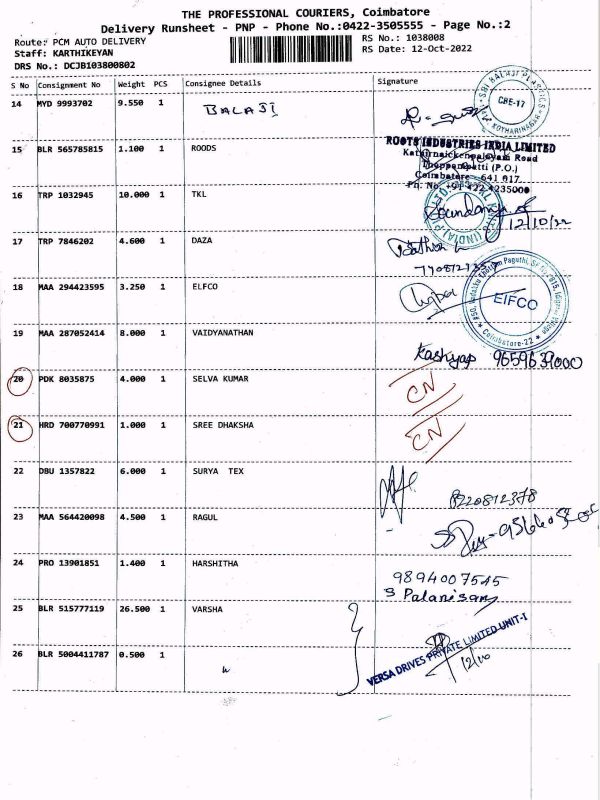 THE PROFESSIONAL COURIERS, Coimbatore
Delivery Runsheet - PNP - Phone No.:0422-3505555 - Page No.:2
Route: PCM AUTO DELIVERY
RS No.: 1038008
Staff: KARTHIKEYAN
RS Date: 12-Oct-2022
DRS No.: DCJB103800802
S No Consignment No Weight PCS Consignee Details Signature
14 MYD 9993702 9.550 1 BALAJI
CBE-17
15 BLR 565785815 1.100 1 ROODS
ROOTS INDUSTRIES INDIA LIMITED
Kathirnaickenpalayam Road
Thoppampatti (P.O.)
Coimbatore - 641 017.
Ph. No +91 422 4235000
16 TRP 1032945 10.000 1 TKL
12/10/22
17 TRP 7846202 4.600 1 DAZA
18 MAA 294423595 3.250 1 ELFCO
EIFCO
Coimbatore-22
19 MAA 287052414 8.000 1 VAIDYANATHAN
Kashyap 9659639000
20 PDK 8035875 4.000 1 SELVA KUMAR CN
21 HRD 700770991 1.000 1 SREE DHAKSHA CN
22 DBU 1357822 6.000 1 SURYA TEX
8220812378
23 MAA 564420098 4.500 1 RAGUL
24 PRO 13901851 1.400 1 HARSHITHA
9894007545
S Palanisamy
25 BLR 515777119 26.500 1 VARSHA
VERSA DRIVES PRIVATE LIMITED UNIT-I
12/10
26 BLR 5004411787 0.500 1 "